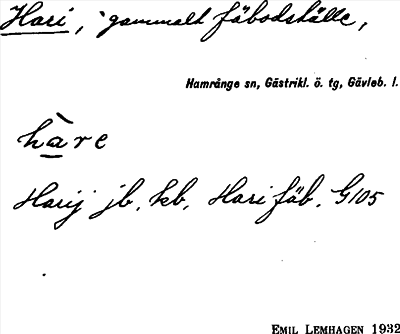 Hari, gammalt fäbodställe,
Hamrånge sn, Gästrikl. ö. tg, Gävleb. l.
hàre
Harij jb. kb. Hari fäb. G105
EMIL LEMHAGEN 1932